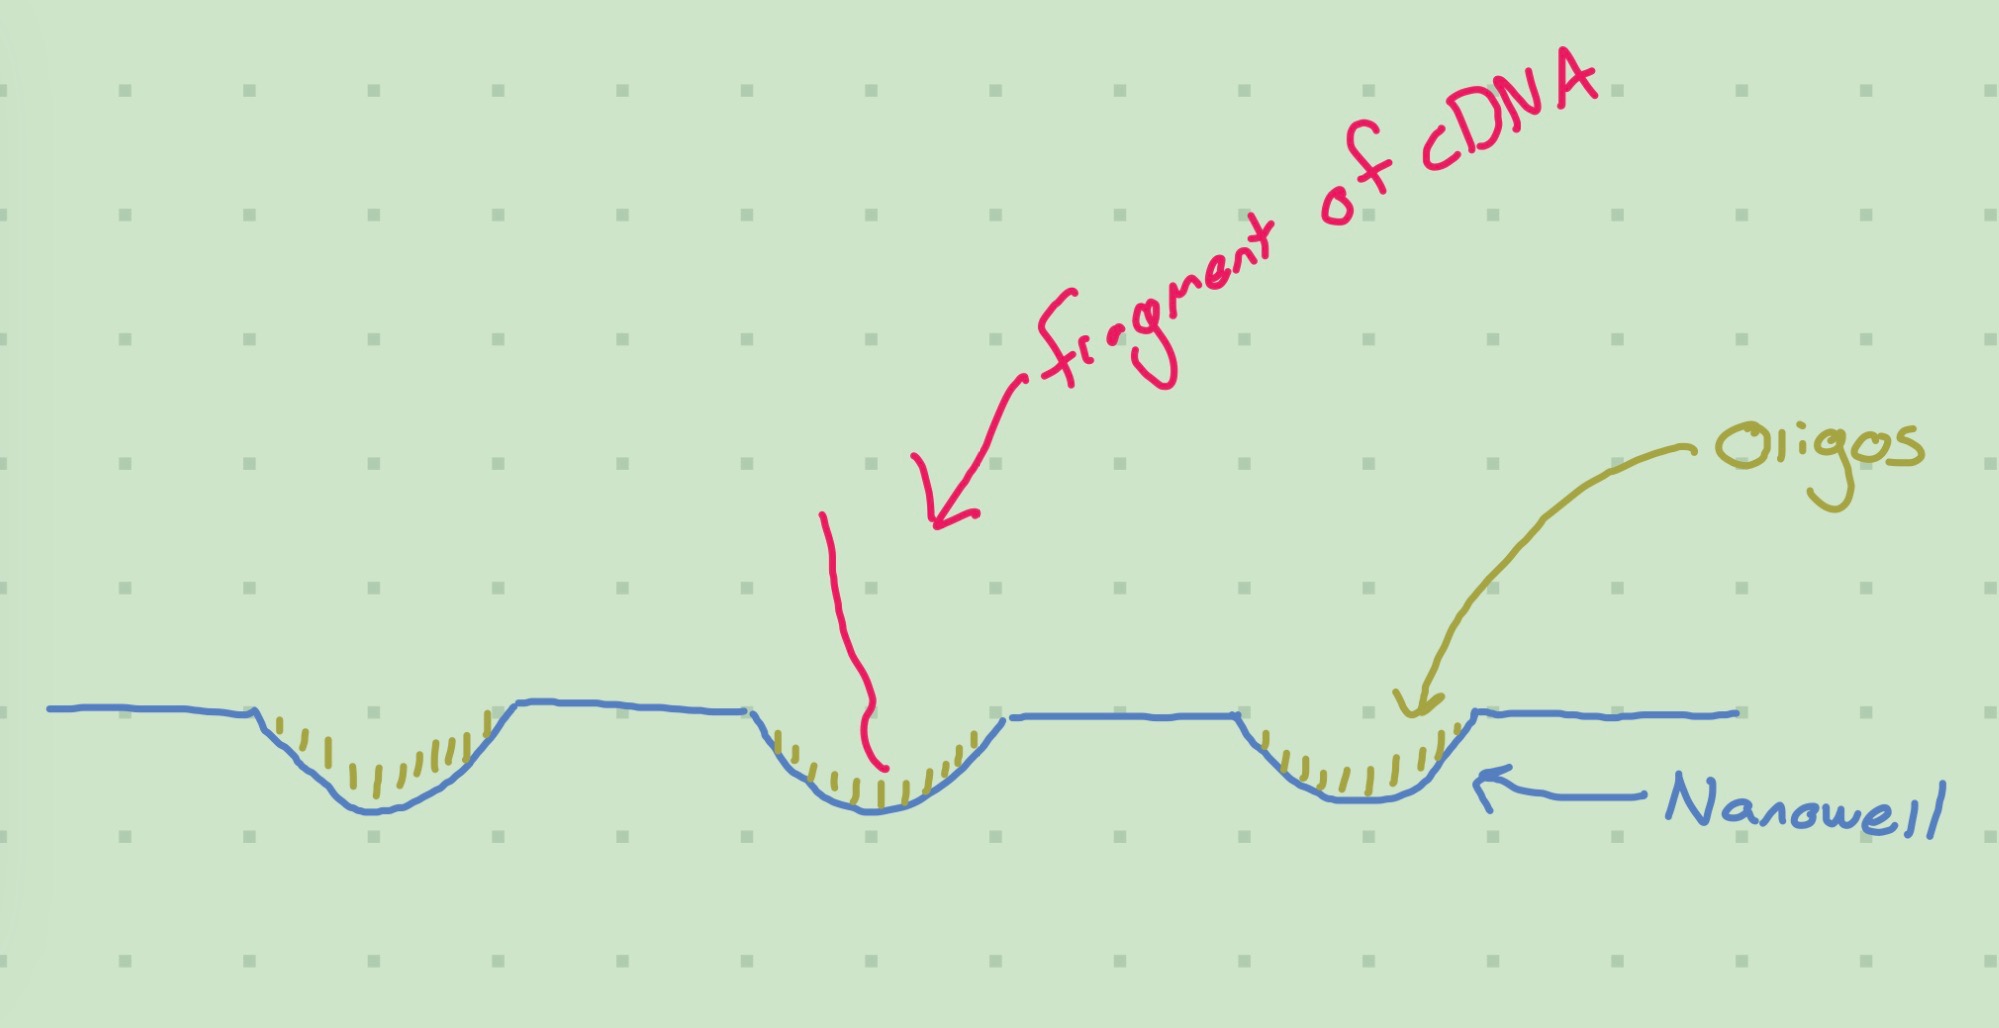 fragment of cDNA
Oligos
Nanowell